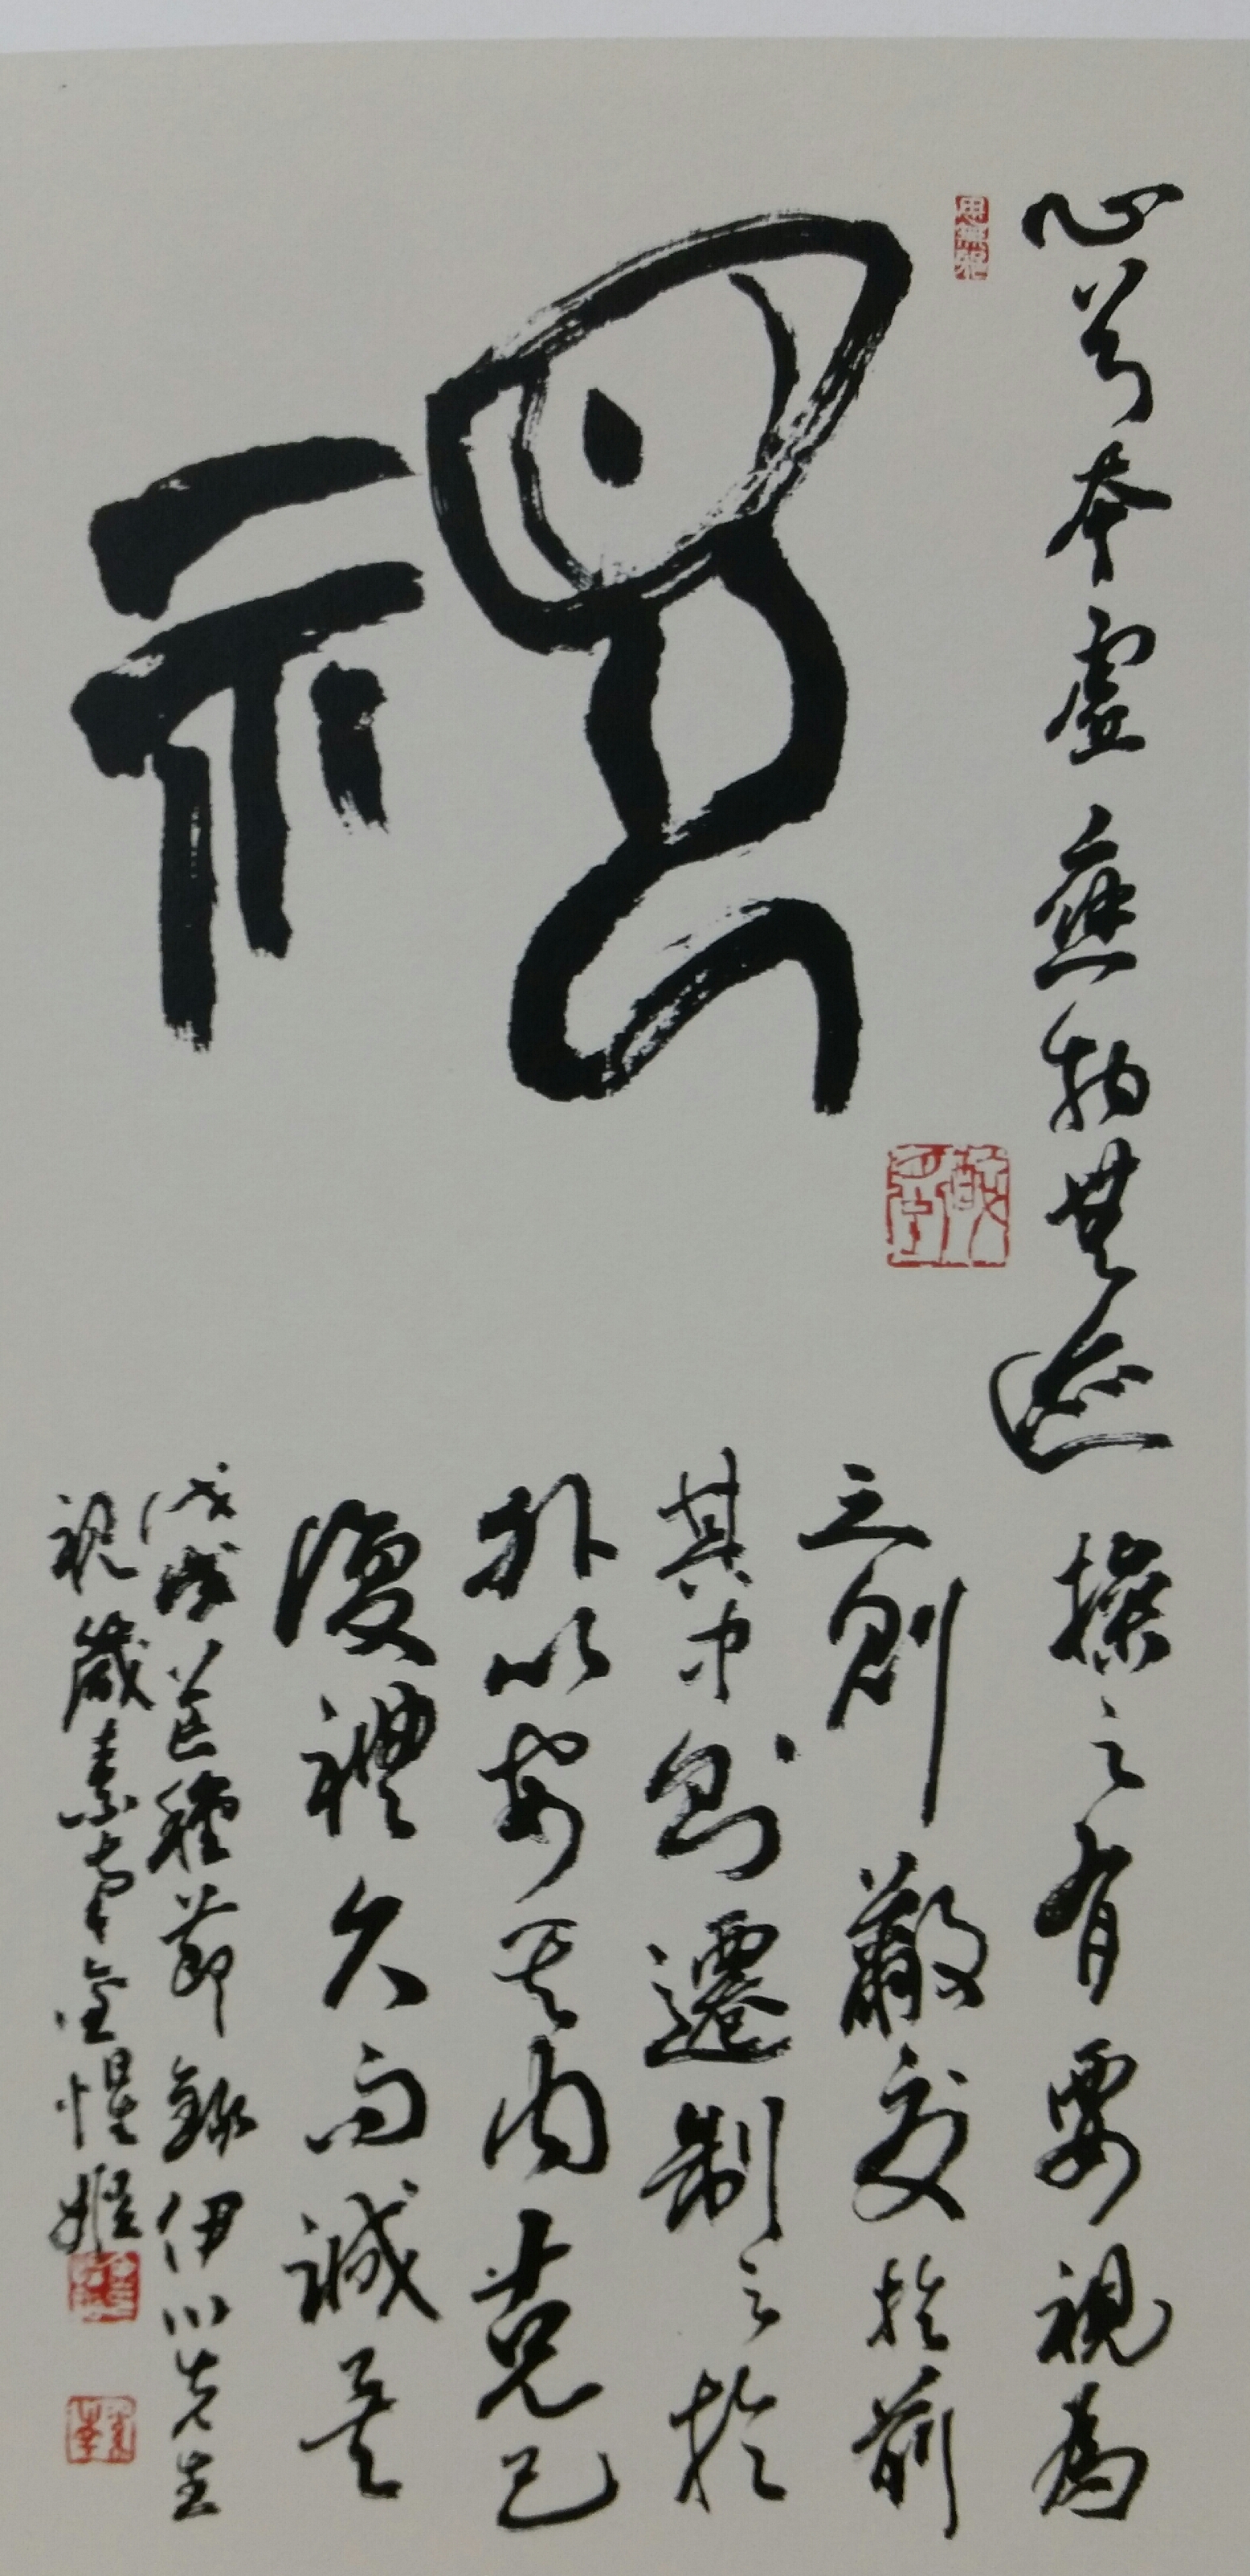 視
思無邪
心兮本虛應物無迹操之有要視為
之則蔽交於前
其中則遷制之於
外以安其內克己
復禮久而誠矣
戊戌芒種節錄伊川先生
視箴素金惺姬